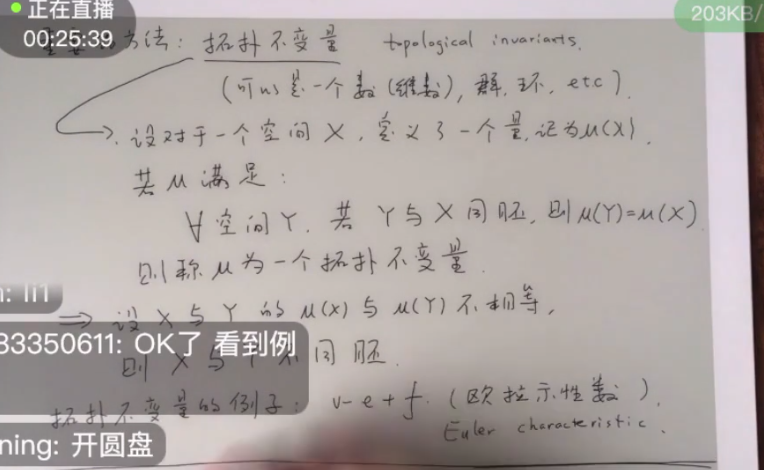 正在直播
00:25:39
203KB/
方法: 拓扑不变量 topological invariants.
(可以是一个数(维数), 群, 环, etc).
设对于一个空间 X, 定义了一个量, 记为μ(X).
若 μ 满足:
∀ 空间 Y. 若 Y 与 X 同胚, 则 μ(Y)=μ(X)
则称 μ 为一个拓扑不变量.
: li1
⇒ 设 X 与 Y 的 μ(X) 与 μ(Y) 不相等,
33350611: OK了 看到例
则 X 与 不同胚.
拓扑不变量的例子: v-e+f. (欧拉示性数).
Euler characteristic.
ning: 开圆盘